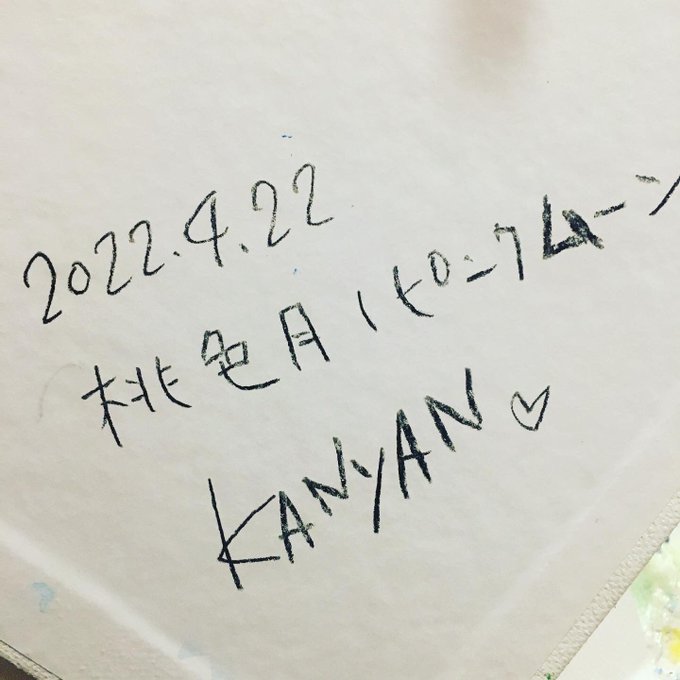 2022.4.22
桃色月(ピンクムーン
KANYAN♡